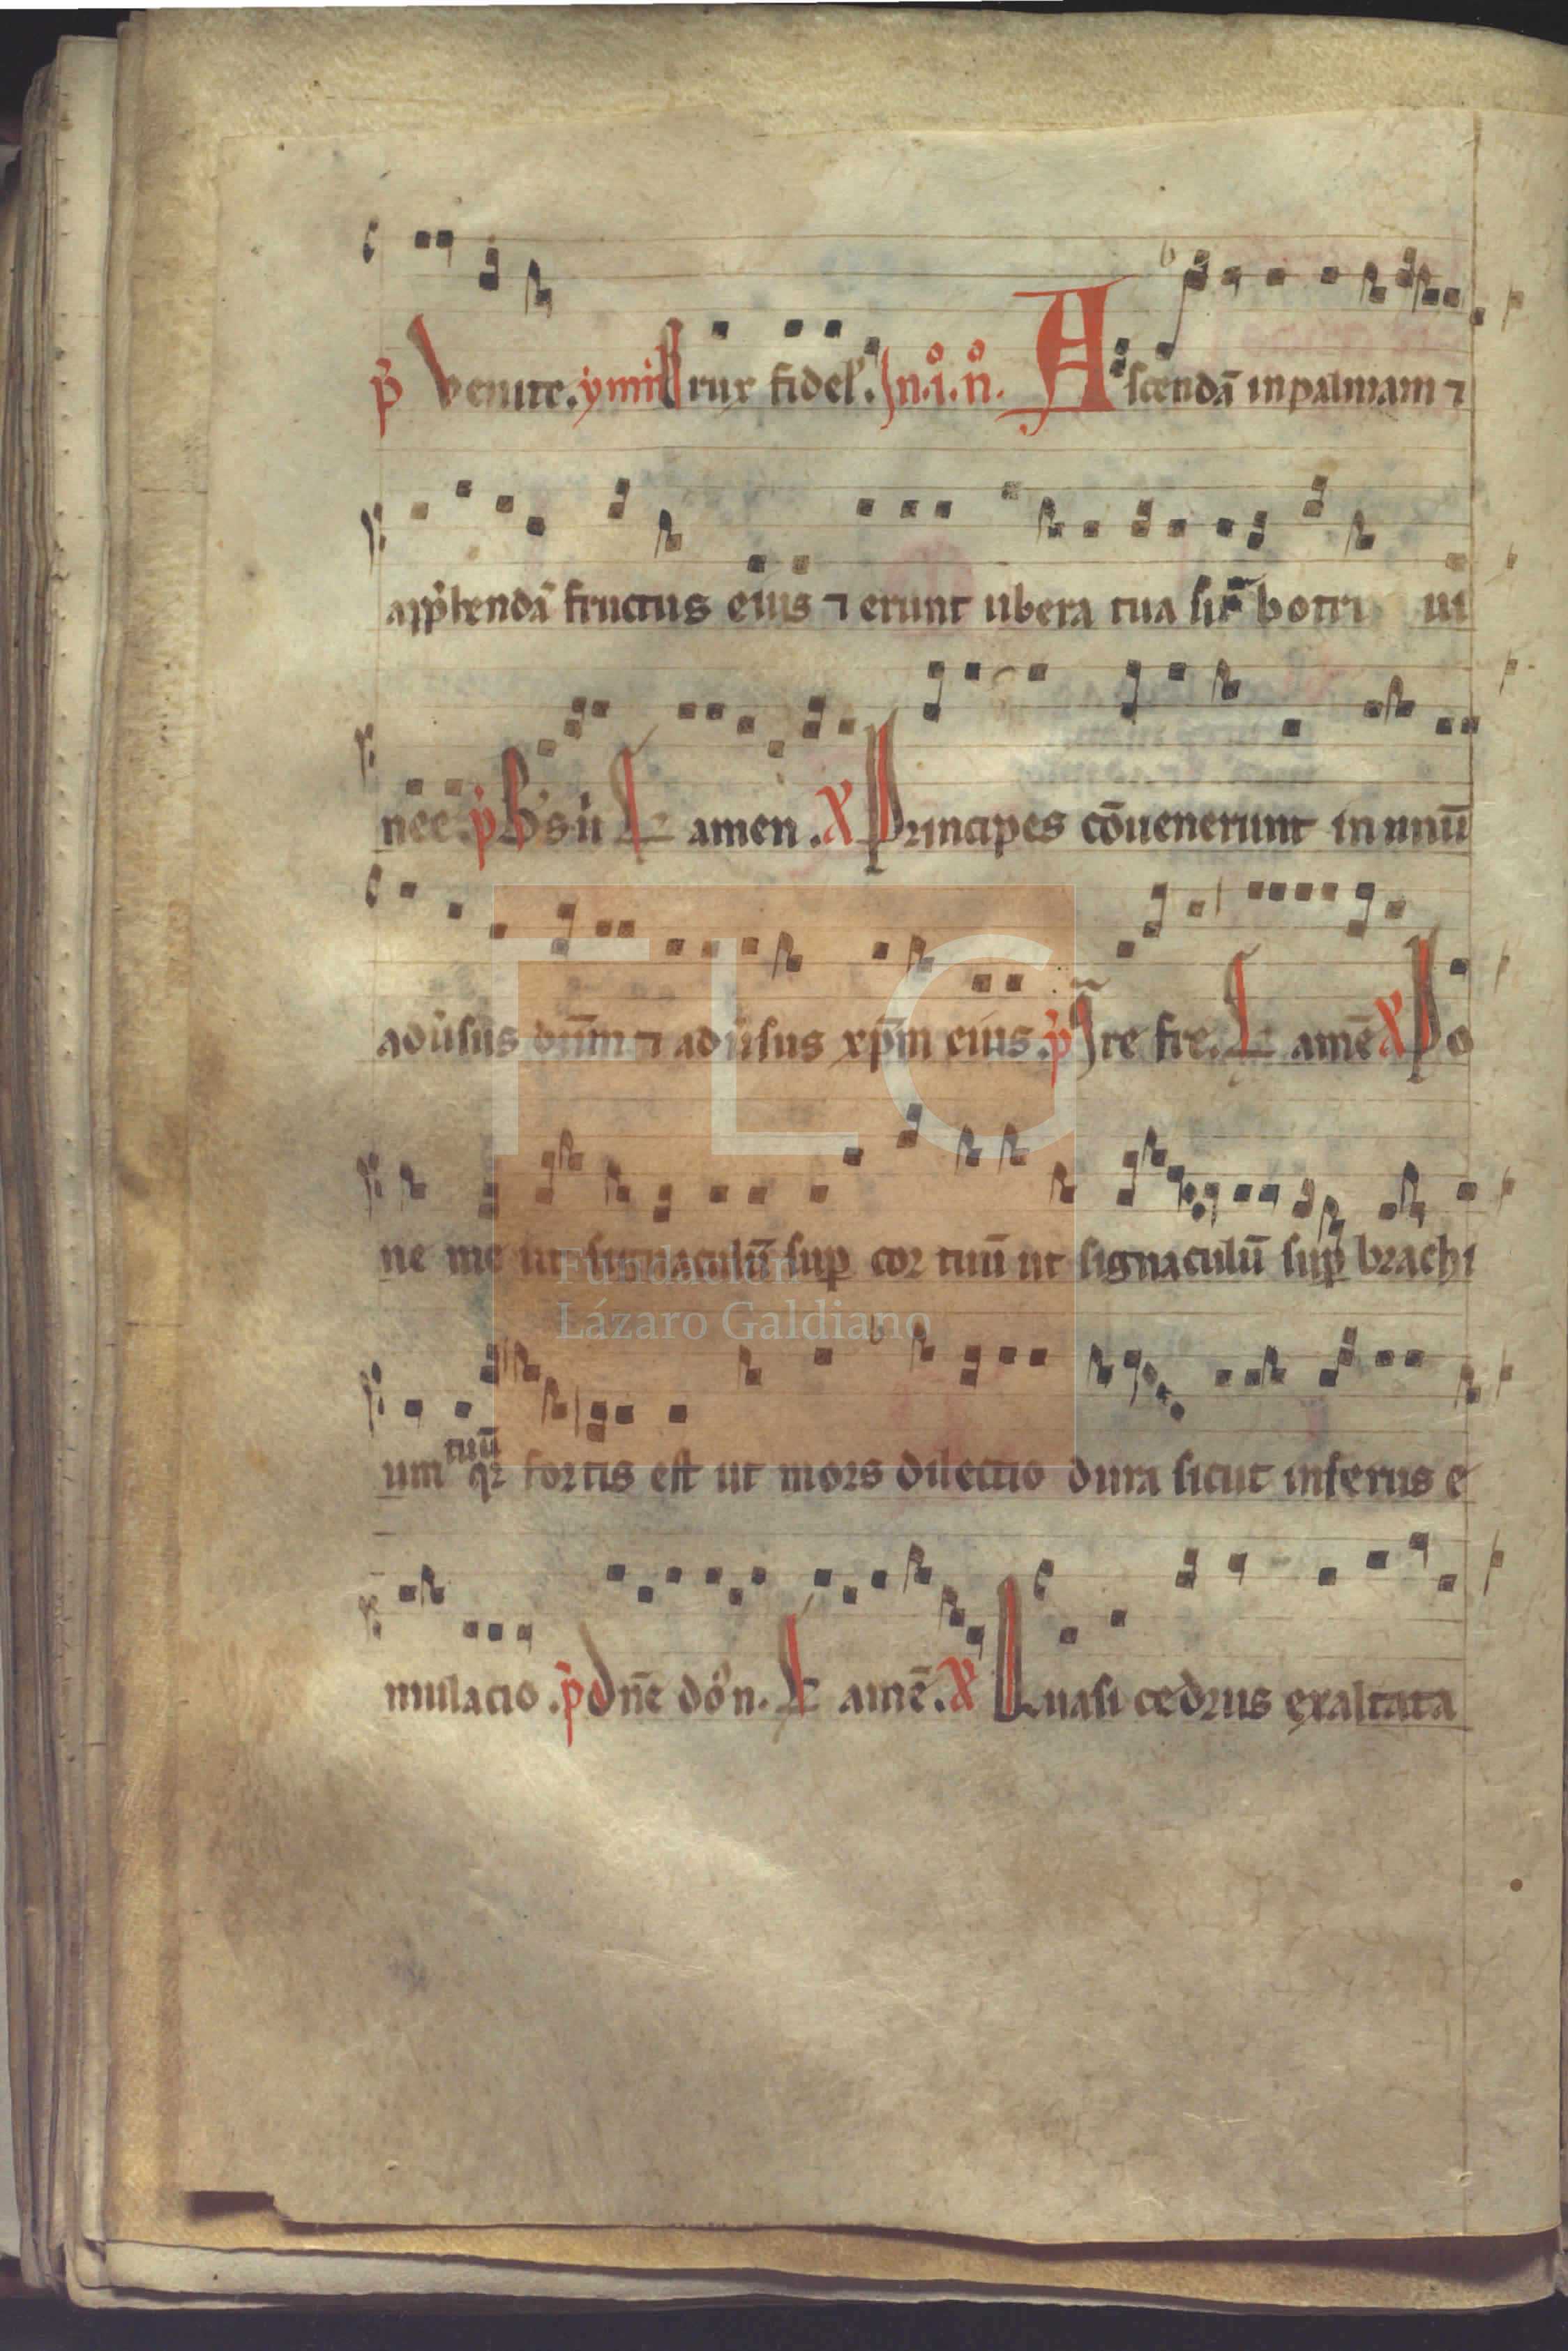 p̃ Venite. ymñ Crux fidel̛. In. i. n̊. Ascendã in palmam ⁊
app̃hendã fructus eius ⁊ erunt ubera tua sic̃ botri ui
nee. p̃s amen. X Principes cõuenerunt in unũ
adũsus dñm ⁊ adũsus xp̃m eius. p̃ fre. amẽ X Po
ne me ut signaculũ sup cor tuũ ut signaculũ sup brachi
um tuũ qr fortis est ut mors dilectio dura sicut inferus e
mulacio. p̃ dñe dõ n. amẽ. X Quasi cedrus exaltata
FLG
Fundación
Lázaro Galdiano